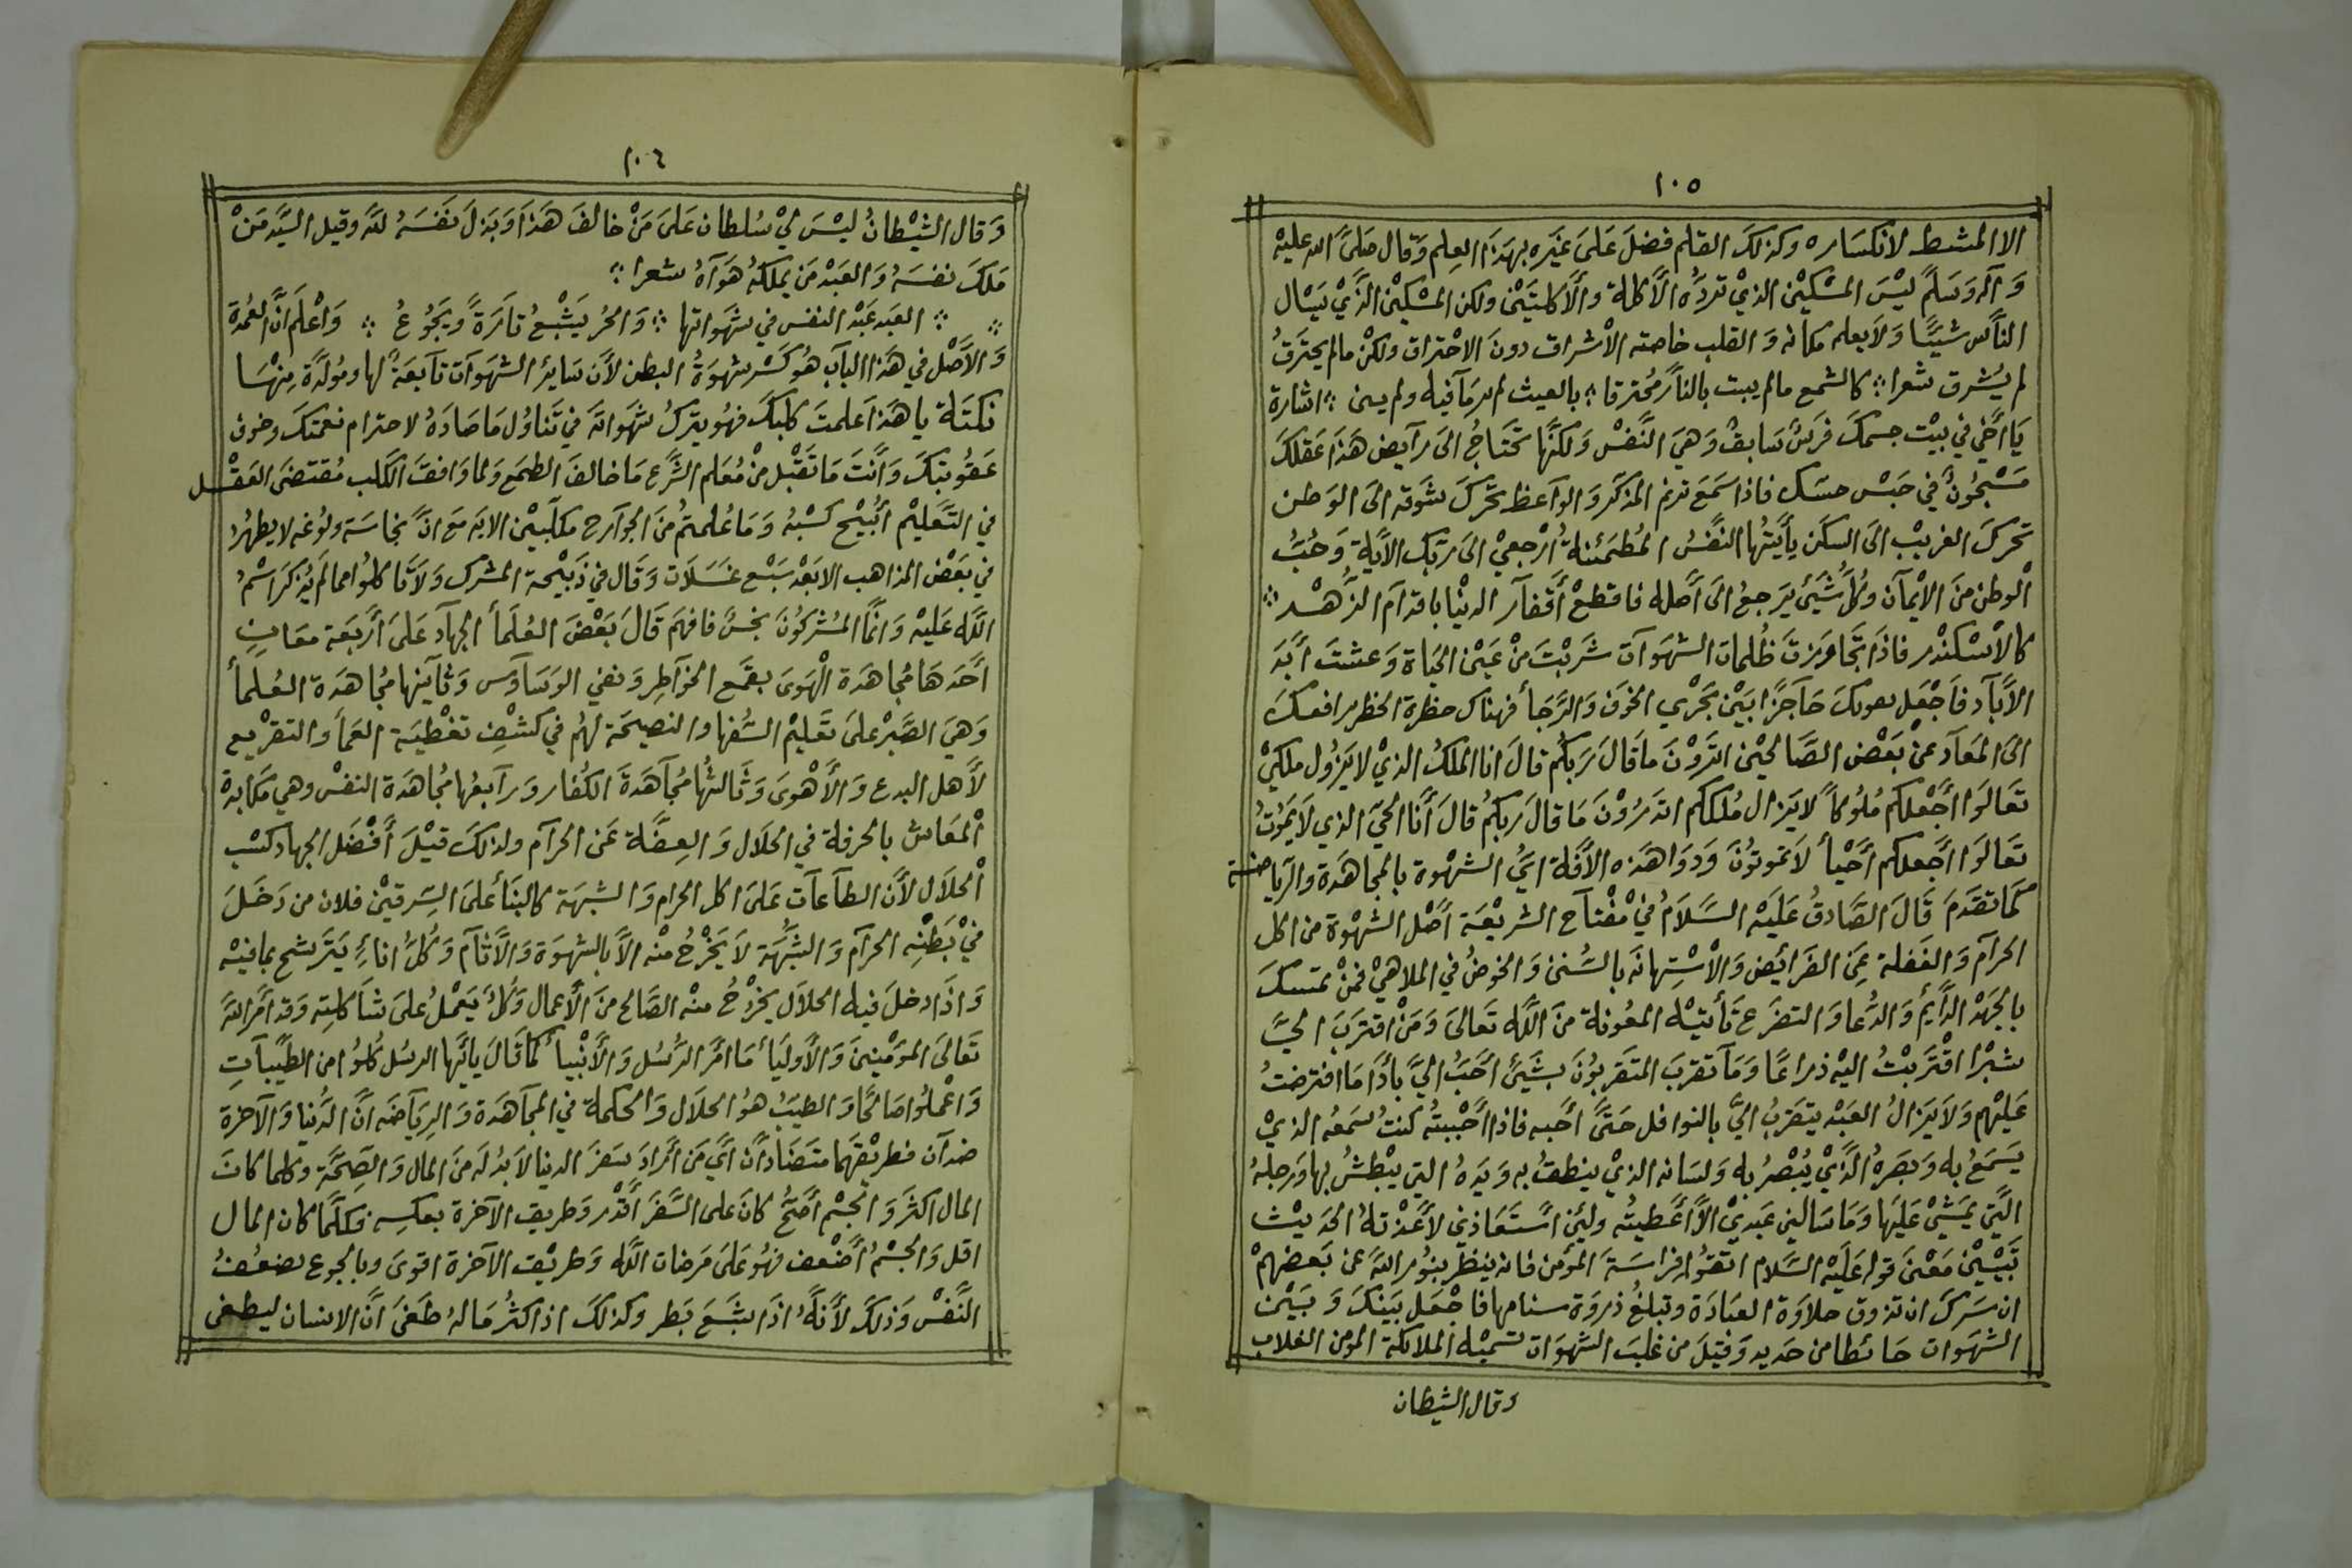 ١٠٥
الا المشط لانكساره وكذلك القلم فضلَ عَلىَ غيَره بهَذا العِلم وَقال صَلىَّ الله عليْه
وَآله وَسَلمَّ ليْسَ المسْكيْن الذيْ تردُّه الأكلة وألأكلتيَنْ ولكن المسْكيْن الذَّيْ يَسْال
النأس شيَئًا وَلاَ يعلم مكانه وَ القلب خاصته الأشراق دونَ الاحْتراق ولكنْ مالم يحترَقُ
لم يُشرق شعرا ؞ كالشمع مالم يبت بالنأر مُحترقا ؞ بالعيث لم يرمَآفيه ولم يـن ؞ اشارة
يَا أخَيْ فيْ بيْت جسمكَ فرَسٌ سَابقٌ وَهيَ النَّفسْ وَلكنَّها تحْتَاجُ الىَ رآيض هَذا عَقلكَ
مَسْجُونٌ فيْ حَبسْ حسَك فاذا سَمعَ ترنم المذكّر وَالوآعظ تحَّركَ شوَقه الىَ الوَطن
تحركَ الغريبْ الىَ السكَن يأيَتهُا النفَّسُ المُطمَئنة ارْجعيْ الىَ ربّك الأيَة وَحُبُّ
الْوطن منَ الايْمآن وكُلّ شَيئ يَرجعُ الىَ أصَله فاقطعْ أقفآر الدنيْا باقدآم الزُّهْـد ؞
كالأسْكنْدر فاذا تجَاوَزتَ ظُلمات الشهَوآت شَربْتَ منْ عَيْن الحيَاة وَعشتَ أبَدَ
الأبآد فاَجْعَل صومكَ حَآجزًا بَيْن بحَرْي الخوَف وَالرَّجأ فهناك حظرة الخظر برافعـكَ
الىَ المعَآد عنْ بَعْض الصَّالحيْن اتدَرُوْنَ مَا قالَ رَبكُم قالَ انا الملكُ الذيْ لا يَزُول ملكيْ
تَعَالوَا أجْعَلكم مُلوُكاً لا يَزال مُلككم اتدَرُوْنَ مَا قالَ رَبكمُ قالَ أنَا الحيّ الذي لاَيَموُتُ
تَعَالوَا أجَعلكم أحْيأ لاَ تموتوُنَ وَدوَا هَذه الأفَة ايَّ الشهْوة بالمجاهَدة والرّياضـة
كمَا تقدَمَ قَالَ الصَّادقُ عَليَه السَّلاَمُ فيْ مْفتآح الشريعْة أصْل الشهْوة من اكل
الحرآم وَالغَفلة عَنِ الفَرائضِ وَالأسْتِهانَه بالسُّننْ وَالخوضُ في الملاهيْ فمنْ تمسكَ
بالجَهْد الدَّايْم وَالدُّعا وَالتضرَع تَأتيْه المعُونة منَ الَّله تَعالىَ وَمَنْ اقترَبَ اليَّ
شبْرا اقْترَبتْ اليْه ذراعًا وَمَآ تقربَ المتَقربوُنَ بشيَئً أحَبُّ اليَّ بأدَا مَا افترضتُ
عَليْهم وَلاَ يَزالُ العَبْد يتقربُ اليَّ بالنوافل حتَىَّ أحَبه فاذا أحْببتُه كنتُ سَمعَه الذيْ
يَسَمعُ به وَبصَرهُ الَّذيْ يُبْصُر به وَلسَانه الذيْ ينطقُ به وَيَدهُ التي يبْطشُ بها وَرجلهُ
الَّتي يمَشيْ عَليَها وَمَا سَالني عَبديْ الأَّ أعَطيتُه ولئِن أستَعَاذني لأَعَذْتهُ الحَديْث
تَبيْينْ مَعْنىَ قوله عَليَه السَّلام اتقوُا فِراسَة المؤَمن فانه ينظرُ بنُور الَّله عن بَعضهمْ
ان سَرَكَ ان تذوق حلاوَة العبَادَة وتبلغُ ذروَة سنامها فاجْعَل بَينَكَ وَ بَيْن
الشهَوات حَائطا من حَديد وَقيْلَ من غلبَ الشهوَات تسَميْه الملائكة المومن الغلاب
وقال الشيطان
١٠٦
وَقال الشيْطانُ ليْسَ ليْ سُلطان عَلىَ مَنْ خالفَ هَذا وَبَذلَ نفَسَهُ للَّه وقيل السيَّد مَنْ
مَلكَ نفسَهُ وَالعَبْد مَن يملكهُ هَوَآهُ شعرا ؞
؞ ؞ العَبد عَبْد النفس في شهَواتها ؞ وَالحُر يَشْبعُ تارَةً وَيجَوُعُ ؞ وَاعْلم انَّ العُمْدة
وَالأصْل في هَذا الباَب هُو كَسْر شهوَةُ البطن لأنَ سَايرُ الشهَوآت تآبعَةً لها ومُولَدةً مِنهَا
نكتَة يا هَذا عَلمتَ كلبَكَ فهُو يترَكُ شهَوَاته فيْ تَناوُل مَا صَادَهُ لاحترام نعمتكَ وخوف
عَقوُبتكَ وَأنَتَ مَا تَقْبَل منْ مُعَلم الشَّرعِ مَا خالفَ الطمَع وَلما وَافقَ الكَلب مُقتضىَ العَقْـل
في التَّعَليْم أبُيْح كسْبُه وَمَا عُلمتمُ منَ الجوآرح مكلَّبيْن الايَة مَع انَّ نجاسَة ولوُغه لا يطهرُ
في بعَض المذاهب الابَعْد سَبْع غَسَلات وَقال في ذَبيْحة المشرك وَلاَ تَّاكلوُا مما لَم يُذكرَ اسْمُ
اللَّه عَليْه وَانمَّا المُشركوُنَ نجسٌ فافهَم قَالَ بَعْضَ العُلَمأ الجهآد عَلىَ أرَبعَة معَانٍ
أحَدهَا مُجاهَدَة الْهَوىَ بقمَع الخوَآطِر وَنفي الوسَاوَس وَثَآنيْها مُجاهَدَة العُـلمأ
وَهيَ الصَّبْر علىَ تعَليْم السُّفها والنصيحَة لهُم في كشْفِ تغْطيَة العَمأ وَالتقرْيع
لأهل البدع وَالأهْوىَ وَثَالثُها مُجآهَدَة الكُفار وَرآبعُها مُجاهَدَة النفسْ وهي مَكابدة
الْمعَاش بالحرفة في الحَلاَل وَ العِفَّة عَن الحرآم ولذلكَ قيْلَ أفضَل الجهاد كسَبْ
الْحلاَل لأنَ الطآعآت عَلىَ اكل الحرام وَالشبهَة كالبنَأ علىَ السِّرقيْن فلان من دَخَلَ
فيْ بَطْنِه الحرآم وَالشبُّهَة لاَ يَخْرُجُ منْه الاَّ بالشهوَة وَالأثآم وَكُلُّ اناءٍ يَترَشح بمافيْه
وَاذا دخلَ فيه الحلاَل يخرْجُ منْه الصَالح منَ الأعمال وَكُلٌ يَعْملُ علىَ شأكلتِه وَقد امَرَ اللهَ
تَعَالىَ المؤَمنْينَ وَالأوليَأ مَا امَرَ الرُّسُل وَالأنْبيأ كمَا قاَلَ يَايَّها الرسُل كُلوُا من الطيَّبآتِ
وَاعْملوُا صَالحًا وَالطيَبُ هوُ الحلاَل وَالحكمة في المجآهَدَة وَالرِيَآضه انَّ الدُّنيا وَالآخرة
ضدآن فطريْقهَما متَضَادأن أيَّ مَن أرَادَ سَفرَ الدنيا لاَ بدُ لَه منَ المال وَالصِحَّة وكلما كانَ
المال اكثَرَ وَ الجسْم أصَحُّ كانَ علىَ السَّفرَ أقْدر وَطريق الآخرة بعكسِه فكلَّما كان المال
اقل وَالجسْمُ أضْعف فهُو عَلىَ مَرضات اللَّه وَطريْق الآخرة اقوىَ وبالجوع يضعُـفُ
النَّفسْ وَذلكَ لأنَهُّ اذا شَبَعَ بَطر وكذلكَ اذ اكثُر مَالهُ طغَىَ أنَّ الانسان ليطغى